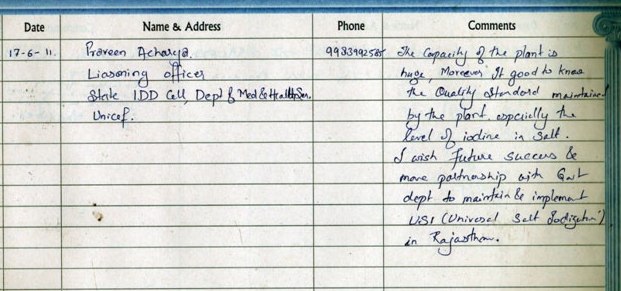 Date Name & Address Phone Comments
17-6-11. Praveen Acharya. The Capacity of the plant is
Liasoning officer huge, Moreover It good to know
State IDD Cell, Dept of Med & Health Ser. the Quality Standard maintained
Unicef. by the plant, especially the
level of iodine in salt.
I wish future success &
more partnership with Govt
dept to maintain & implement
USI (Universal Salt Iodization)
in Rajasthan.